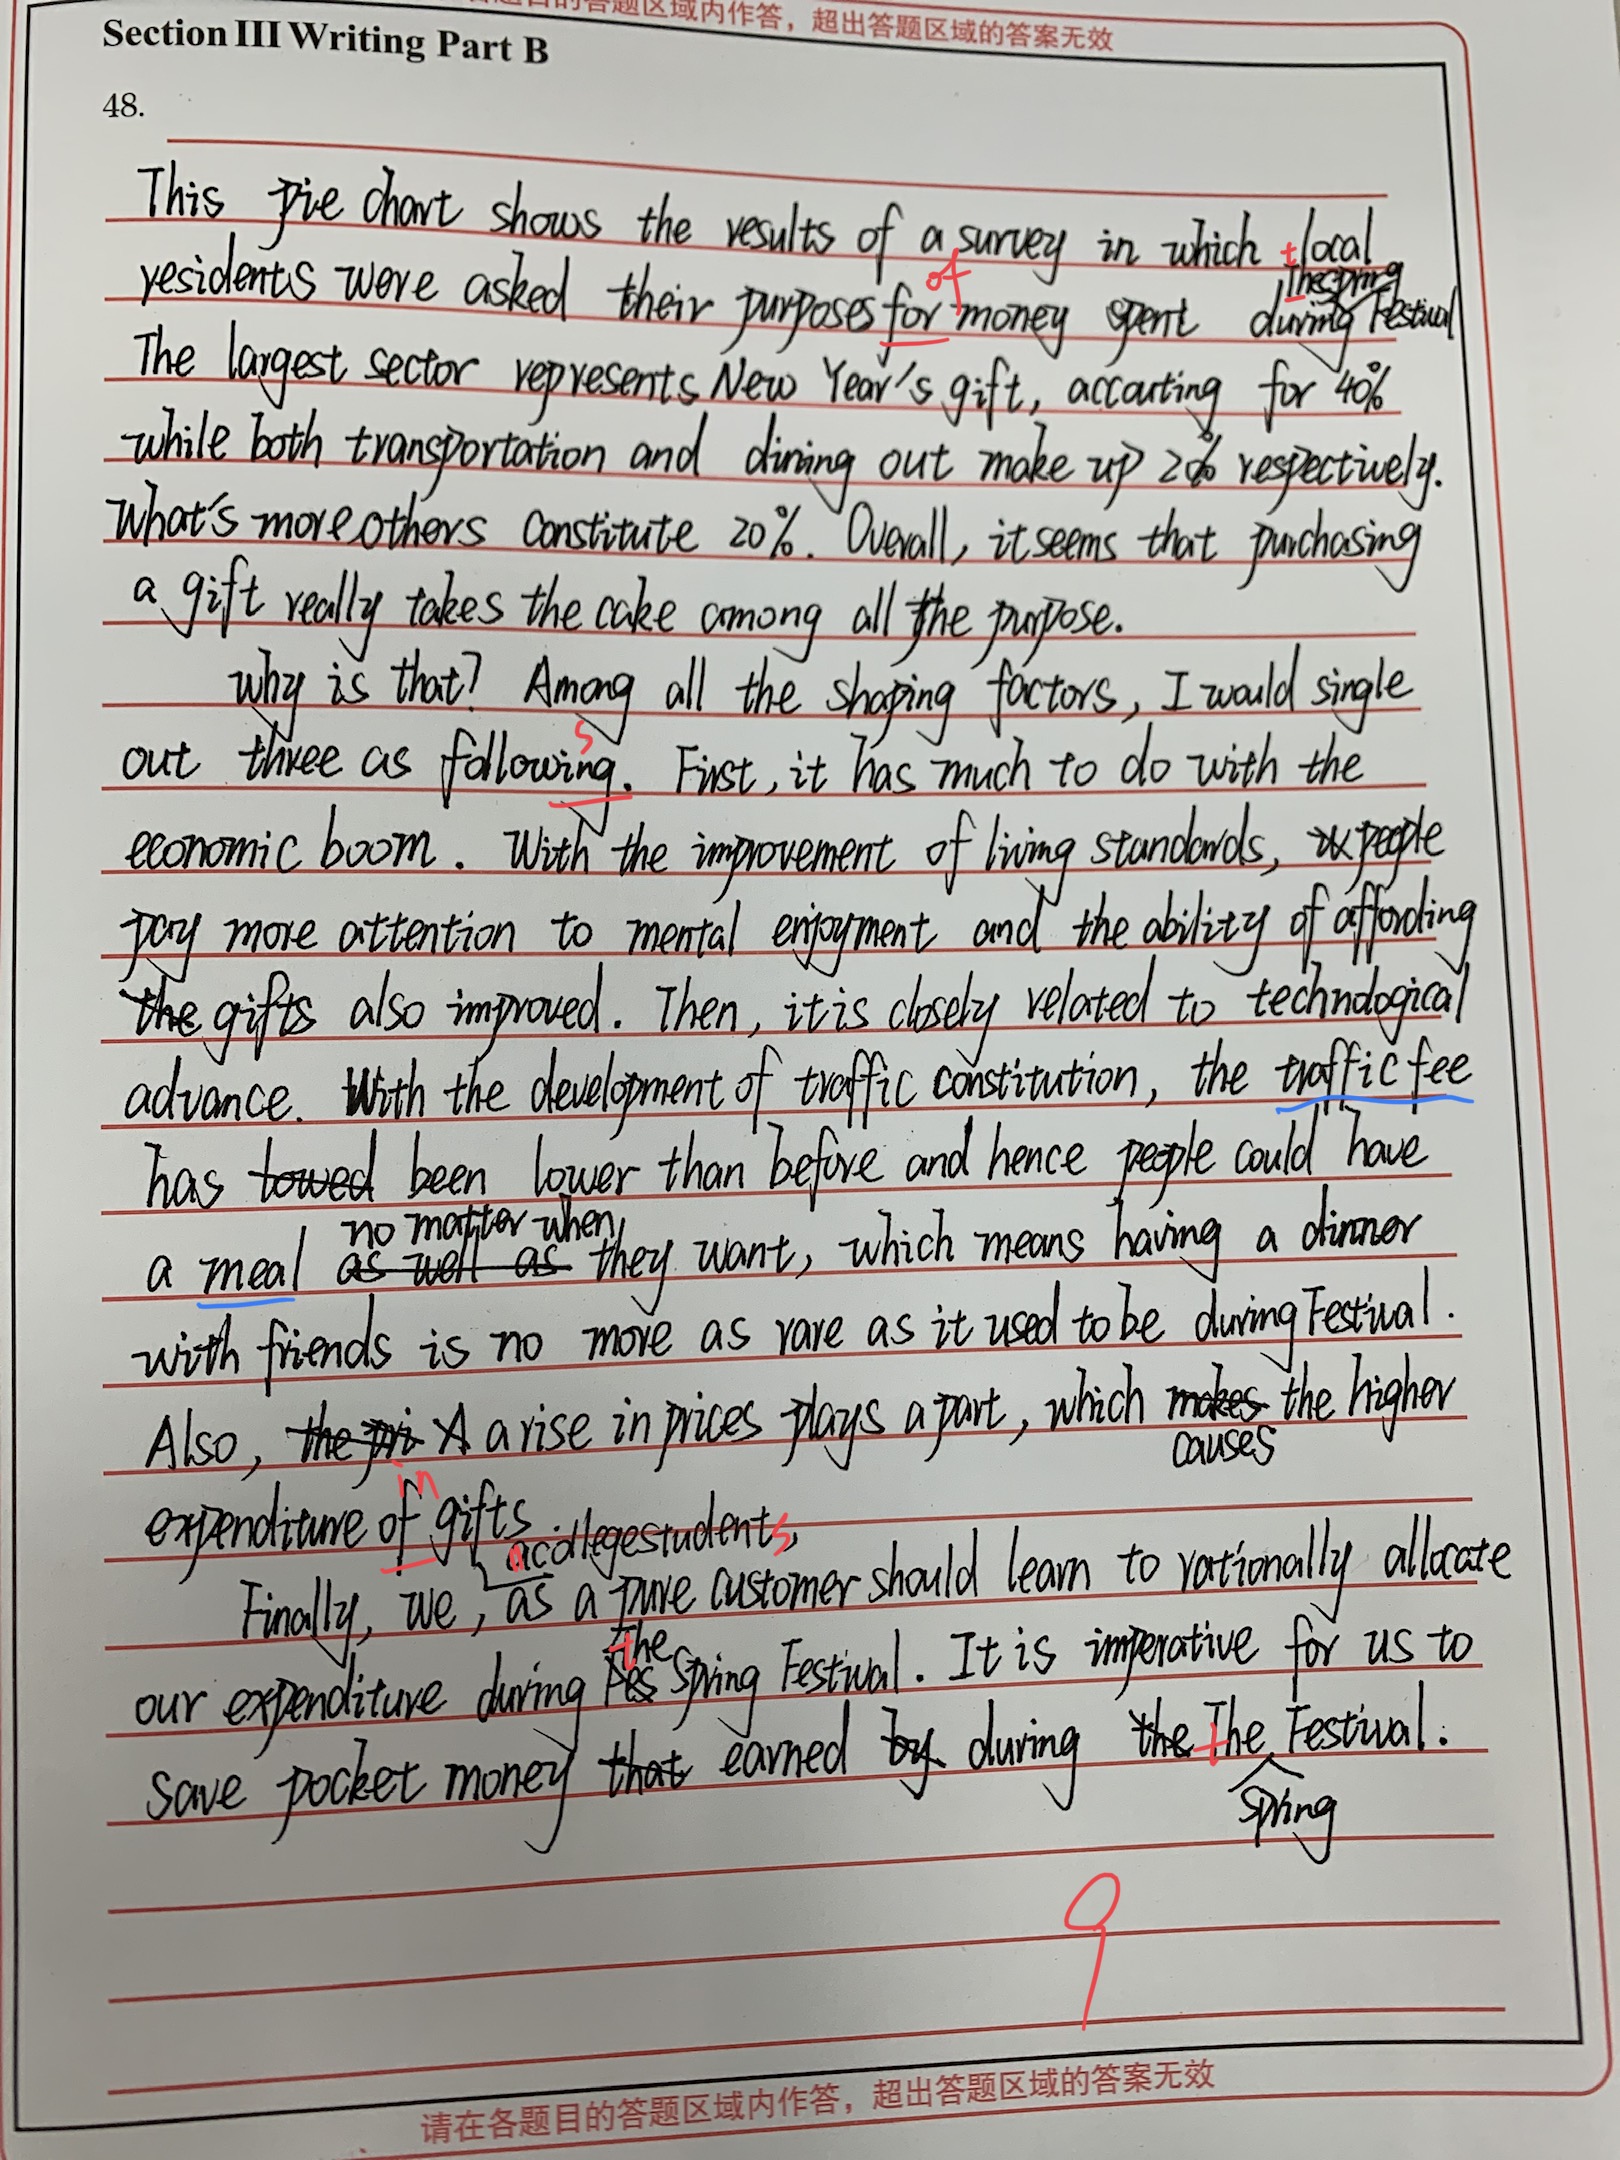 答题区域内作答，超出答题区域的答案无效
Section III Writing Part B
48.
This pie chart shows the results of a survey in which tlocal
of The Spring
residents were asked their purposes for money spent during Festival
The largest sector represents New Year's gift, accouting for 40%
while both transportation and dining out make up 20% respectively.
What's more others constitute 20%. Overall, it seems that purchasing
a gift really takes the cake among all the purpose.
why is that? Among all the shaping factors, I would single
s
out three as following. First, it has much to do with the
economic boom. With the improvement of living standards, people
pay more attention to mental enjoyment and the ability of affording
the gifts also improved. Then, it is closely related to technological
advance. With the development of traffic constitution, the traffic fee
has towed been lower than before and hence people could have
no matter when
a meal as well as they want, which means having a dinner
with friends is no more as rare as it used to be during Festival.
Also, the pri A a rise in prices plays a part, which makes the higher
causes
in
expenditure of gifts
a college students,
Finally, we, as a pure customer should learn to rationally allocate
the
our expenditure during Spring Festival. It is imperative for us to
save pocket money that earned by during the The Festival.
Spring
9
请在各题目的答题区域内作答，超出答题区域的答案无效